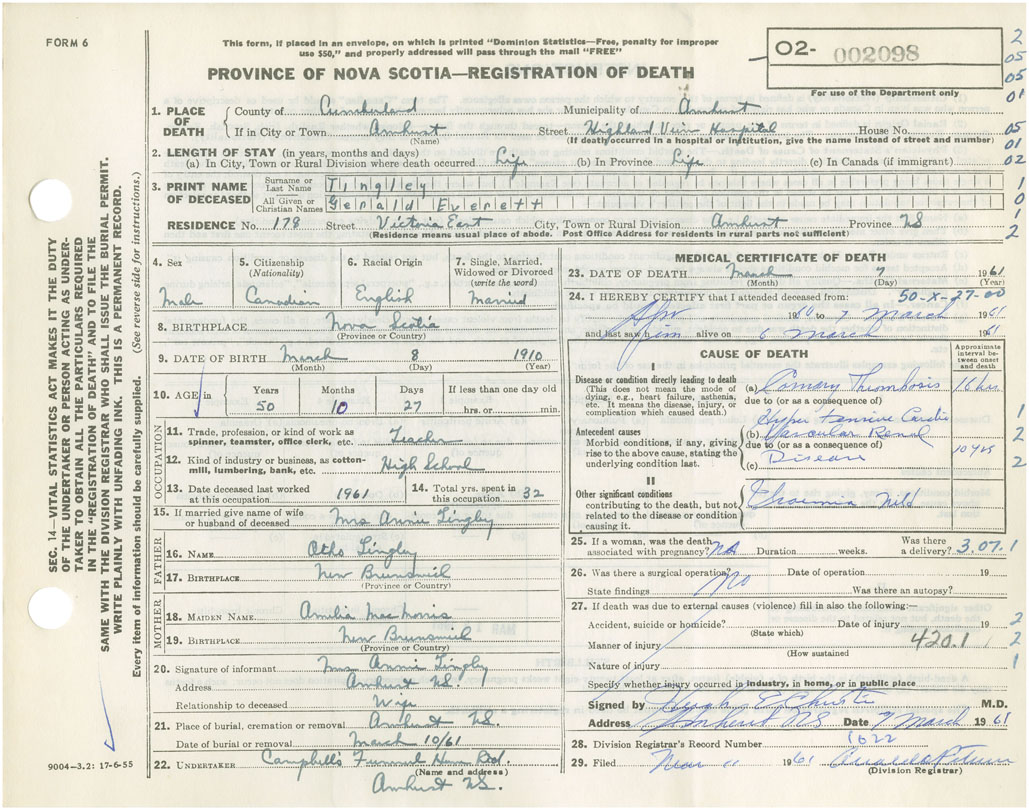 FORM 6
This form, if placed in an envelope, on which is printed "Dominion Statistics—Free, penalty for improper
use $50," and properly addressed will pass through the mail "FREE"
PROVINCE OF NOVA SCOTIA—REGISTRATION OF DEATH
O2- 002098
For use of the Department only
2
05
05
01
05
01
02
1
0
1
2
1. PLACE OF DEATH
County of Cumberland Municipality of Amherst
If in City or Town Amherst Street Highland View Hospital House No.
(Name) (If death occurred in a hospital or institution, give the name instead of street and number)
2. LENGTH OF STAY (in years, months and days)
(a) In City, Town or Rural Division where death occurred Life (b) In Province Life (c) In Canada (if immigrant)
3. PRINT NAME OF DECEASED
Surname or Last Name Tingley
All Given or Christian Names Gerald Everett
RESIDENCE No. 178 Street Victoria East City, Town or Rural Division Amherst Province NS
(Residence means usual place of abode. Post Office Address for residents in rural parts not sufficient)
4. Sex
Male
5. Citizenship
(Nationality)
Canadian
6. Racial Origin
English
7. Single, Married, Widowed or Divorced
(write the word)
Married
8. BIRTHPLACE Nova Scotia
(Province or Country)
9. DATE OF BIRTH March 8 1910
(Month) (Day) (Year)
10. AGE in
Years 50
Months 10
Days 27
If less than one day old
hrs. or min.
OCCUPATION
11. Trade, profession, or kind of work as
spinner, teamster, office clerk, etc. Teacher
12. Kind of industry or business, as cotton-
mill, lumbering, bank, etc. High School
13. Date deceased last worked
at this occupation 1961
14. Total yrs. spent in
this occupation 32
15. If married give name of wife
or husband of deceased Mrs Annie Tingley
FATHER
16. NAME Otho Tingley
17. BIRTHPLACE New Brunswick
(Province or Country)
MOTHER
18. MAIDEN NAME Amelia MacMorris
19. BIRTHPLACE New Brunswick
(Province or Country)
20. Signature of informant Mrs Annie Tingley
Address Amherst NS.
Relationship to deceased Wife
21. Place of burial, cremation or removal Amherst NS.
Date of burial or removal March 10/61
22. UNDERTAKER Campbell's Funeral Home
(Name and address)
Amherst NS.
MEDICAL CERTIFICATE OF DEATH
23. DATE OF DEATH March 7 1961
(Month) (Day) (Year)
50-X-27-00
24. I HEREBY CERTIFY that I attended deceased from:
Apr 1960 to 7 March 1961
and last saw him alive on 6 March 1961
CAUSE OF DEATH
Approximate interval between onset and death
I
Disease or condition directly leading to death
(This does not mean the mode of
dying, e.g., heart failure, asthenia,
etc. It means the disease, injury, or
complication which caused death.)
(a) Coronary Thrombosis 16 hrs
due to (or as a consequence of)
Antecedent causes
Morbid conditions, if any, giving
rise to the above cause, stating the
underlying condition last.
Hyper Tensive Cardio
(b) Vascular Renal
due to (or as a consequence of)
(c) Disease
1
2
2
II
Other significant conditions
contributing to the death, but not
related to the disease or condition
causing it.
Mild
25. If a woman, was the death
associated with pregnancy? NA Duration weeks. Was there a delivery? 3.07.1
26. Was there a surgical operation? No Date of operation 19
State findings Was there an autopsy?
27. If death was due to external causes (violence) fill in also the following:—
Accident, suicide or homicide? Date of injury 19 2
(State which)
Manner of injury 420.1 2
(How sustained)
Nature of injury 1
Specify whether injury occurred in industry, in home, or in public place
Signed by Hugh E. Christie M.D.
Address Amherst NS Date 7 March 1961
28. Division Registrar's Record Number 1622
29. Filed 11 1961
(Division Registrar)
SEC. 14—VITAL STATISTICS ACT MAKES IT THE DUTY
OF THE UNDERTAKER OR PERSON ACTING AS UNDER-
TAKER TO OBTAIN ALL THE PARTICULARS REQUIRED
IN THE "REGISTRATION OF DEATH" AND TO FILE THE
SAME WITH THE DIVISION REGISTRAR WHO SHALL ISSUE THE BURIAL PERMIT.
WRITE PLAINLY WITH UNFADING INK. THIS IS A PERMANENT RECORD.
Every item of information should be carefully supplied. (See reverse side for instructions.)
9004—3.2: 17-6-55